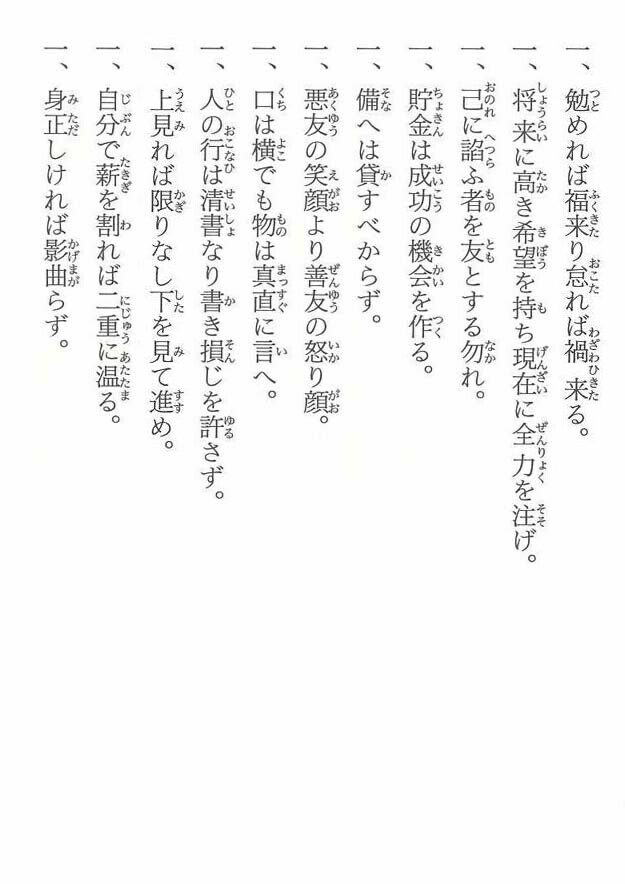 一、勉めれば福来り怠れば禍来る。
一、将来に高き希望を持ち現在に全力を注げ。
一、己に諂ふ者を友とする勿れ。
一、貯金は成功の機会を作る。
一、備へは貸すべからず。
一、悪友の笑顔より善友の怒り顔。
一、口は横でも物は真直に言へ。
一、人の行は清書なり書き損じを許さず。
一、上見れば限りなし下を見て進め。
一、自分で薪を割れば二重に温る。
一、身正しければ影曲らず。